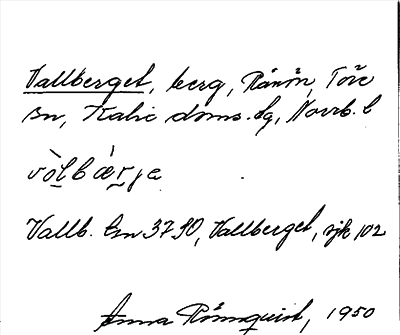 Vallberget, berg, Rånön, Töre
sn, Kalix doms.sg, Norrb. l
vòlbärje
Vallb. Gsn 3790, Vallberget, sjk 102
Anna Rönnquist, 1950